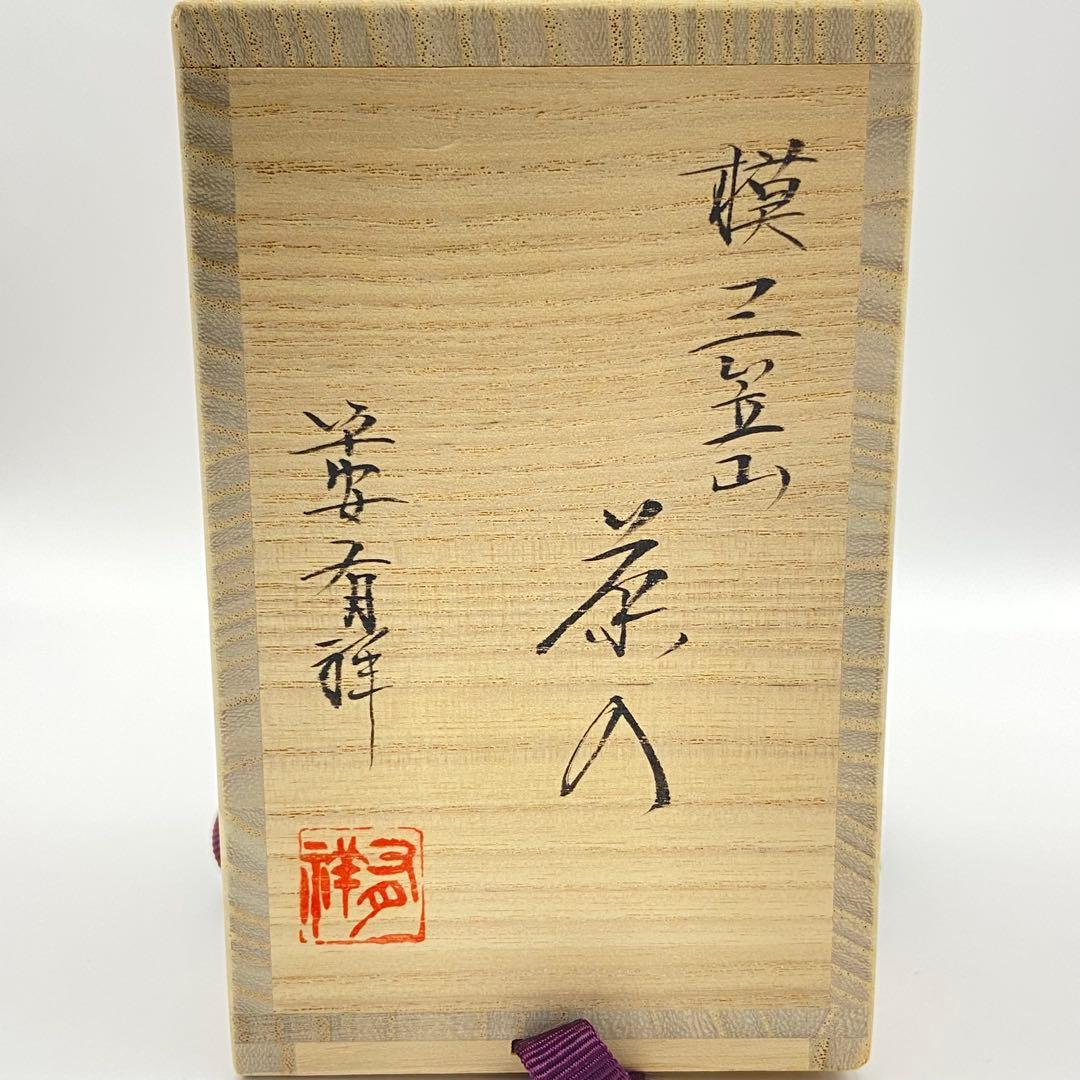 模三笠山
茶入
平安有祥
有祥